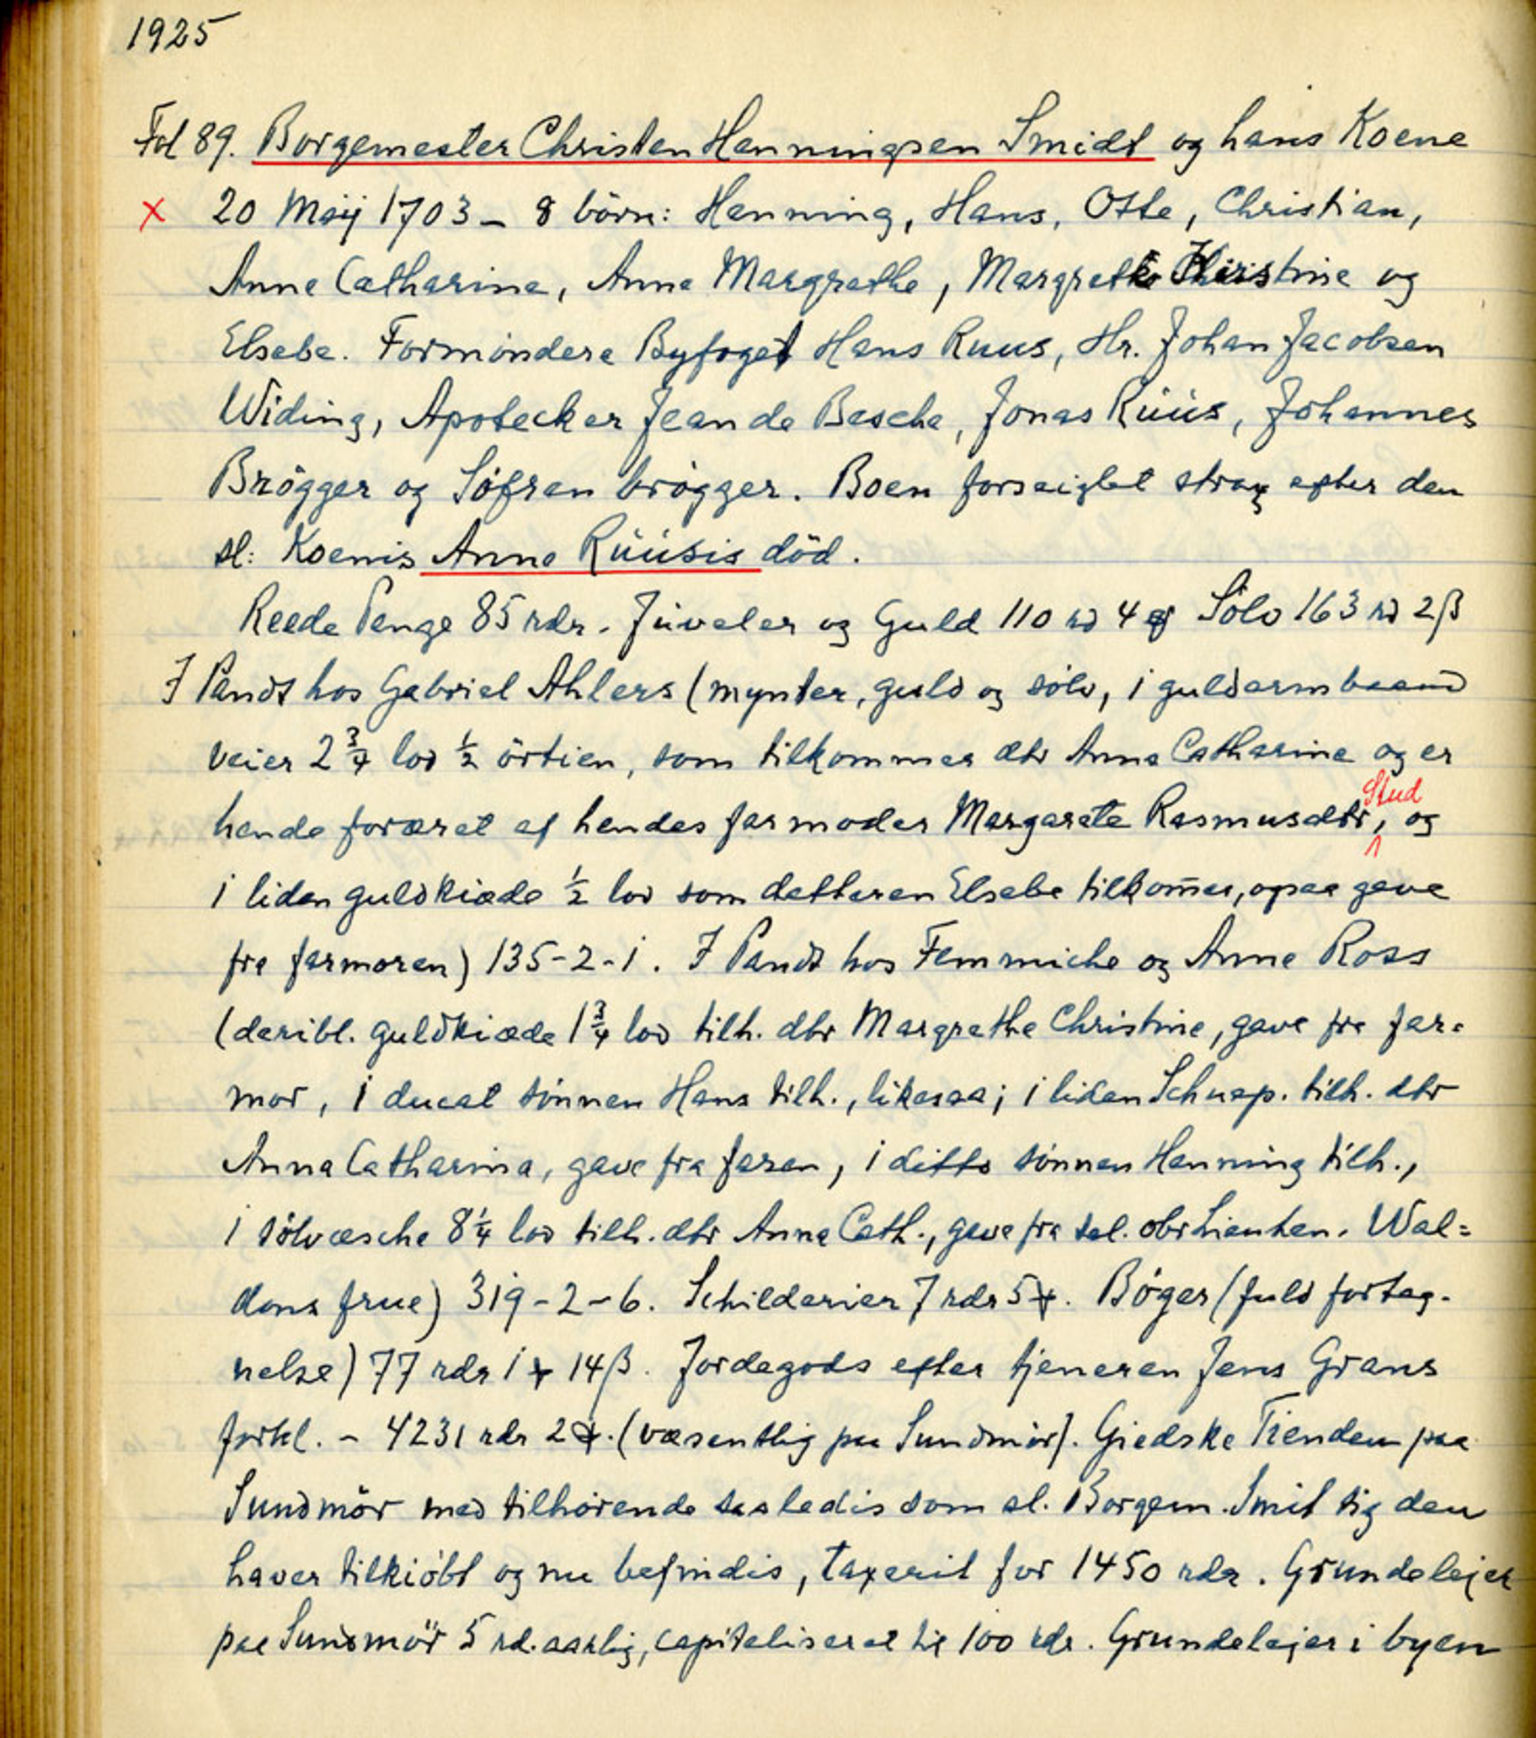 1925
Fol 89. Borgemester Christen Henningsen Smidt og hans Koene
x 20 Maij 1703 - 8 börn: Henning, Hans, Otte, Christian,
Anne Catharine, Anne Margrethe, Margrethe Christine og
Elsebe. Formöndere Byfoget Hans Ruus, Hr. Johan Jacobsen
Widing, Apotecker Jean de Besche, Jonas Rüüs, Johannes
Brögger og Söfren brögger. Boen forseiglet strax efter den
sl: Koenis Anne Rüüsis död.
Reede Penge 85 rdr. Juveler og Guld 110 rd 4 Sölv 163 rd 2 β
I Pandt hos Gabriel Ahlers (mynter, guld og sölv, 1 guldarmbaand
veier 2 3/4 lod 1/2 örtien, som tilkommer dtr Anne Catharine og er
hende foræret af hendes farmoder Margarete Rasmusdtr Stud, og
1 liden guldkiæde 1/2 lod som datteren Elsebe tilkom̄er, ogsaa gave
fra farmoren) 135-2-1. I Pandt hos Femmiche og Anne Ross
(deribl. guldkiæde 1 3/4 lod tilh. dtr Margrethe Christine, gave fra far-
mor, 1 ducat sönnen Hans tilh., likesaa; 1 liden Schuep. tilh. dtr
Anna Catharina, gave fra faren, 1 ditto sönnen Henning tilh.,
1 sölvæsche 8 1/4 lod tilh. dtr Anne Cath., gave fra sal. obrLieuten. Wal=
dens frue) 319-2-6. Schilderier 7 rdr 5. Böger (fuld forteg-
nelse) 77 rdr 1 14 β. Jordegods efter tjeneren Jens Grans
forkl. - 4231 rdr 2. (væsentlig paa Sundmör). Giedske Tienden paa
Sundmör med tilhörende saaledis som sl. Borgem. Smit sig den
haver tilkiöbt og nu befindis, taxerit for 1450 rdr. Grundelejer
paa Sundmör 5 rd. aarlig, capitaliseret til 100 rdr. Grundelejer i byen